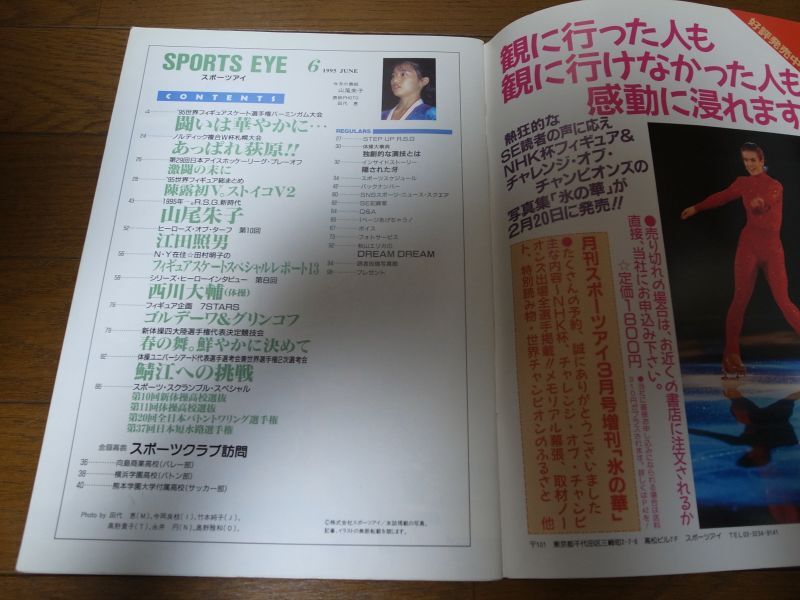 SPORTS EYE
スポーツアイ
6 1995 JUNE
今月の表紙
山尾朱子
表紙PHOTO
田代 恵
CONTENTS
4 '95世界フィギュアスケート選手権バーミンガム大会
闘いは華やかに…
24 ノルディック複合W杯札幌大会
あっぱれ荻原!!
25 第29回日本アイスホッケーリーグ・プレーオフ
激闘の末に
'95世界フィギュア総まとめ
陳露初V。ストイコV2
43 1995年…。R.S.G.新時代
山尾朱子
52 ヒーローズ・オブ・ターフ 第10回
江田照男
N・Y在住☆田村明子の
フィギュアスケートスペシャルレポート13
シリーズ・ヒーローインタビュー 第8回
西川大輔(体操)
フィギュア企画 7STARS
ゴルデーワ&グリンコフ
新体操四大陸選手権代表決定競技会
春の舞。鮮やかに決めて
82 体操ユニバーシアード代表選手選考会兼世界選手権2次選考会
鯖江への挑戦
86 スポーツ・スクランブル・スペシャル
第10回新体操高校選抜
第11回体操高校選抜
第20回全日本バトントワリング選手権
第37回日本短水路選手権
スポーツクラブ訪問
36 向島商業高校(バレー部)
38 横浜学園高校(バトン部)
40 熊本学園大学付属高校(サッカー部)
REGULARS
21 STEP UP R.S.G
30 体操大事典
独創的な演技とは
32 インサイドストーリー
隠された牙
34 スポーツスケジュール
42 バックナンバー
60 SNSスポーツ・ニュース・スクエア
62 SE伝言板
64 Q&A
65 1ページあげちゃう♪
67 ボイス
73 フォトサービス
92 秋山エリカの
DREAM DREAM
94 読者投稿写真館
98 プレゼント
Photo by 田代 恵(M)、今岡良枝(I)、竹本純子(J)、
高野貴子(T)、永井 円(N)、高野雅和(O)、
©株式会社スポーツアイ/本誌掲載の写真、
記事、イラストの無断転載を禁じます。
好評発売中
観に行った人も
観に行けなかった人も
感動に浸れます
熱狂的な
SE読者の声に応え
NHK杯フィギュア&
チャレンジ・オブ・
チャンピオンズの
写真集「氷の華」が
2月20日に発売!!
●売り切れの場合は、お近くの書店に注文されるか
直接、当社にお申込み下さい。
☆定価1800円
月刊スポーツアイ3月号増刊「氷の華」
●たくさんの予約、誠にありがとうございました
主な内容〜NHK杯、チャレンジ・オブ・チャンピ
オンズ出場全選手掲載!!メモリアル幕張、取材ノー
ト、特別読み物・世界チャンピオンのふるさと 他
〒101 東京都千代田区三崎町2-7-6 高松ビル7F スポーツアイ TEL03-3234-9141